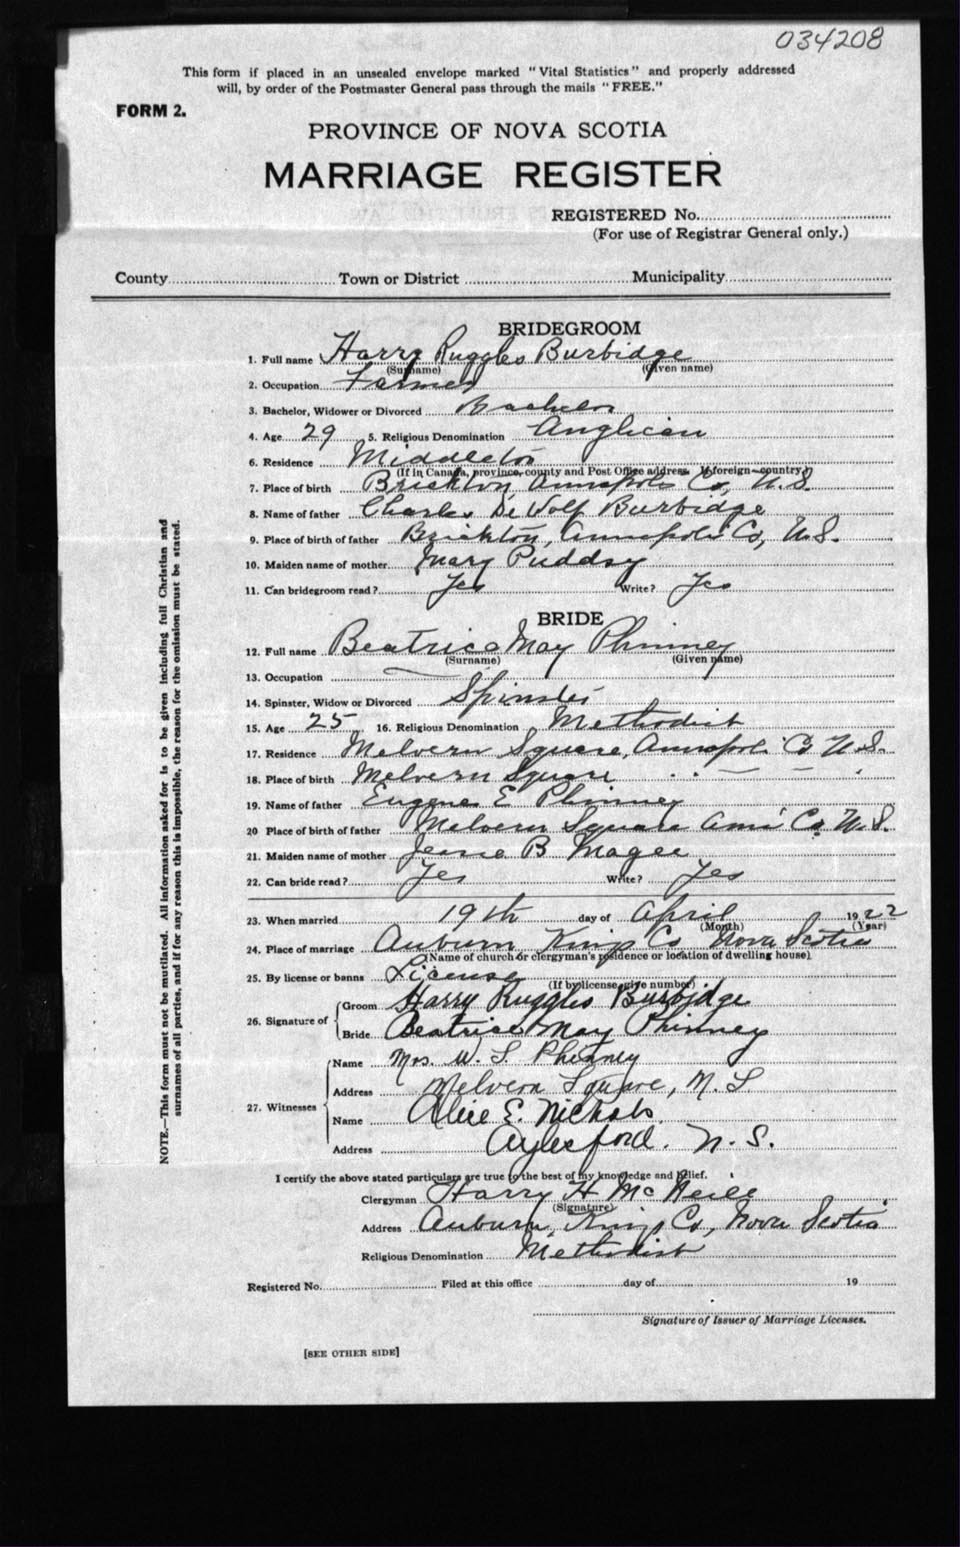 034208
This form if placed in an unsealed envelope marked "Vital Statistics" and properly addressed
will, by order of the Postmaster General pass through the mails "FREE."
FORM 2.
PROVINCE OF NOVA SCOTIA
MARRIAGE REGISTER
REGISTERED No.
(For use of Registrar General only.)
County Town or District Municipality
BRIDEGROOM
1. Full name Harry Ruggles Burbidge
(Surname) (Given name)
2. Occupation Farmer
3. Bachelor, Widower or Divorced Bachelor
4. Age 29 5. Religious Denomination Anglican
6. Residence Middleton
(If in Canada, province, county and Post Office address. If foreign—country)
7. Place of birth Brickton, Annapolis Co, N.S.
8. Name of father Charles DeWolf Burbidge
9. Place of birth of father Brickton, Annapolis Co, N.S.
10. Maiden name of mother Mary Puddsy
11. Can bridegroom read? Yes Write? Yes
BRIDE
12. Full name Beatrice May Phinney
(Surname) (Given name)
13. Occupation —
14. Spinster, Widow or Divorced Spinster
15. Age 25 16. Religious Denomination Methodist
17. Residence Melvern Square, Annapolis Co N.S.
18. Place of birth Melvern Square
19. Name of father Eugene E Phinney
20 Place of birth of father Melvern Square Anna Co. N.S.
21. Maiden name of mother Jessie B Magee
22. Can bride read? Yes Write? Yes
23. When married 19th day of April 1922
(Month) (Year)
24. Place of marriage Auburn Kings Co Nova Scotia
(Name of church or clergyman's residence or location of dwelling house)
25. By license or banns License
(If by license, give number)
26. Signature of Groom Harry Ruggles Burbidge
Bride Beatrice May Phinney
27. Witnesses Name Mrs. W. S. Phinney
Address Melvern Square, N.S
Name Alice E. Nichols.
Address Aylesford. N.S.
I certify the above stated particulars are true to the best of my knowledge and belief.
Clergyman Harry H McNeill
(Signature)
Address Auburn, Kings Co, Nova Scotia
Religious Denomination Methodist
Registered No. Filed at this office day of 19
Signature of Issuer of Marriage Licenses.
[SEE OTHER SIDE]
NOTE.—This form must not be mutilated. All information asked for is to be given including full Christian and
surnames of all parties, and if for any reason this is impossible, the reason for the omission must be stated.